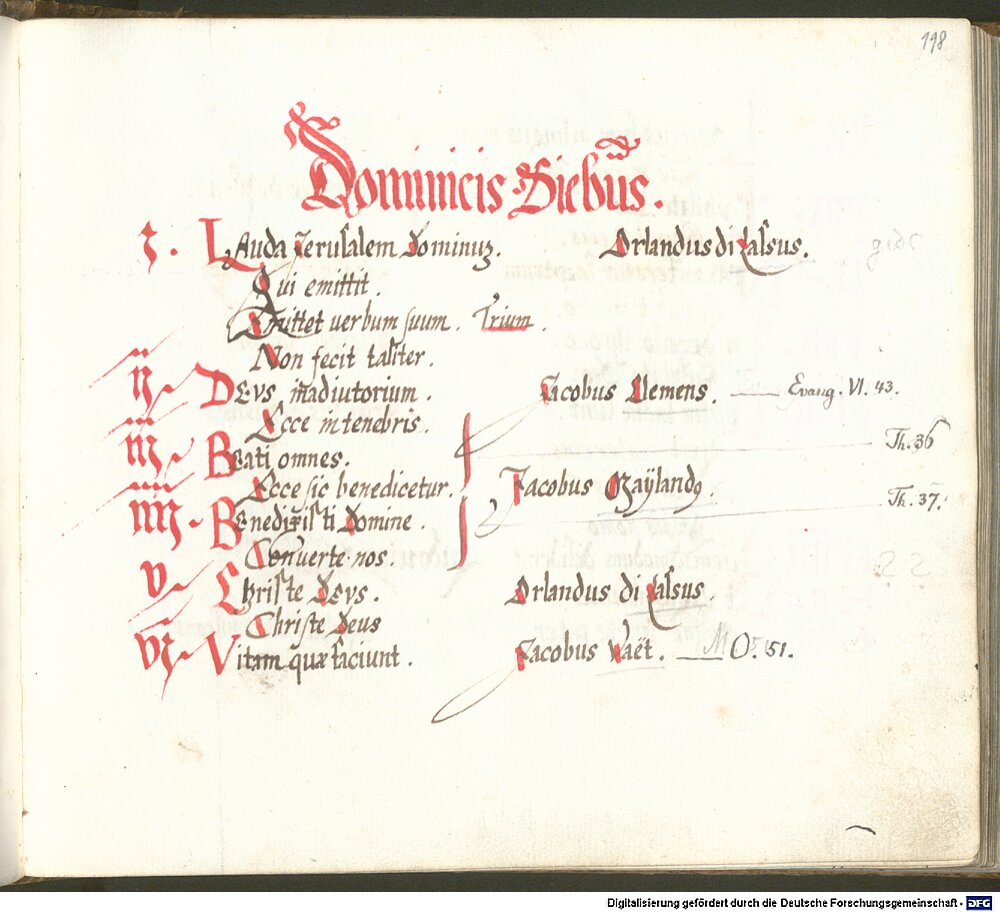 198
Dominicis Diebus.
I. LAuda Jerusalem Dominum. Orlandus di Lassus. gedr
Qui emittit.
Emittet verbum suum. Trium.
Non fecit taliter.
II DEVS in adiutorium. Jacobus Clemens. Evang. VI. 43.
Ecce in tenebris.
III BEati omnes. Th. 36
Ecce sic benedicetur. Jacobus Maÿland9.
IIII BEnedixisti Domine. Th. 37.
Conuerte nos.
V CHriste DEVS. Orlandus di Lassus.
Christe Deus
VI Vitam quæ faciunt. Jacobus Vaët. M O. 51.
Digitalisierung gefördert durch die Deutsche Forschungsgemeinschaft - DFG